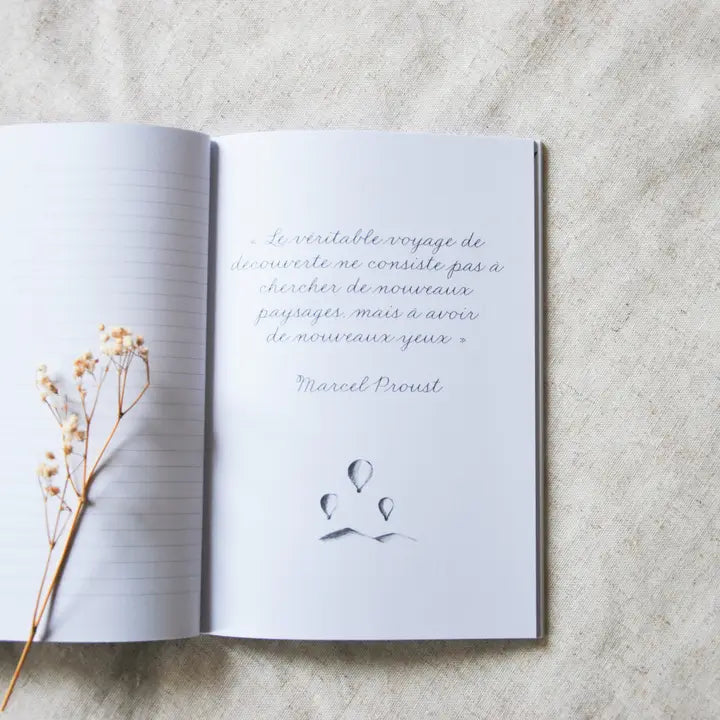 « Le véritable voyage de
découverte ne consiste pas à
chercher de nouveaux
paysages, mais à avoir
de nouveaux yeux »
Marcel Proust